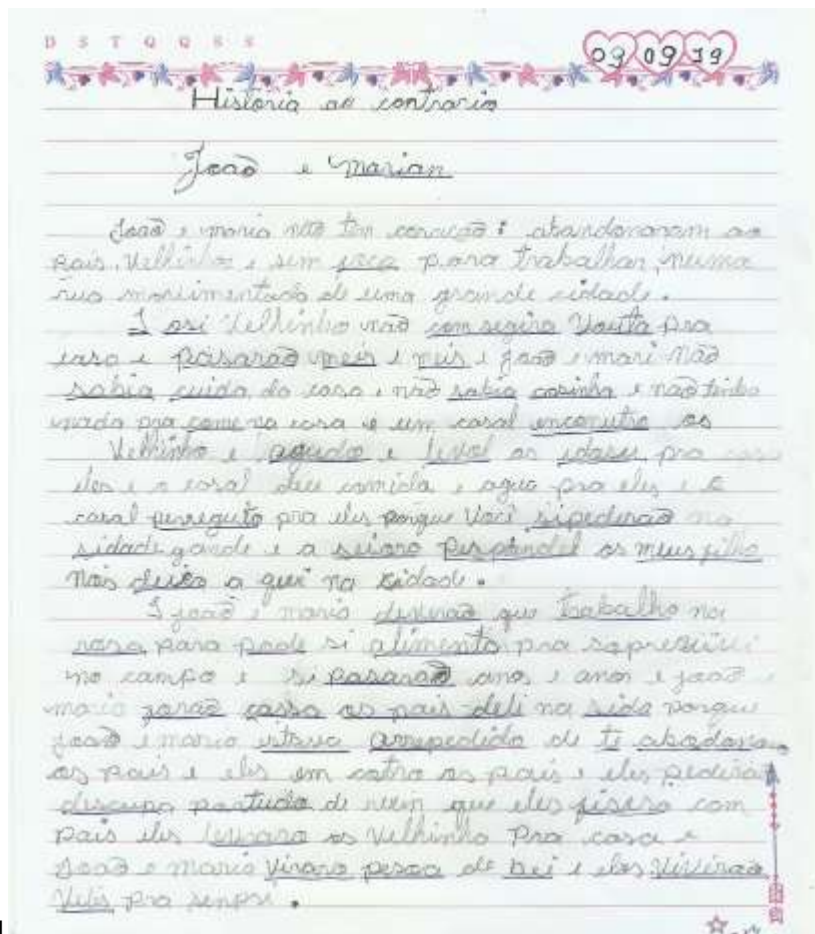 D S T Q Q S S
09 09 19
História ao contrario
João e Marian
João e maria não tem coração: abandonaram as
pais, Velhinho e sem para trabalhar, numa
rua movimentado de uma grande sidade.
I asi Velhinho não com segira Vouta pra
casa e pásarão meis e meis e João e mari não
sabia cuida da casa e não sabia cosinha e não tinha
nada pra come na casa e um casal encontro os
Velhinho e agudo e levol os pra casa
eles e o casal deu comida e agua pra eles e o
casal perreguto pra eles porque Você sipederão na
sidade gande e a seiora Respondel os meus filho
nos deixo a qui na sidade.
I joão e maria que trabalho na
para pode si alimento pra
no campo e si pasarão anos e anos e joão e
maria forão os pais deli na sida porque
joão e maria arrepedido de ti abadona
os pais e eles em cotro os pais e eles pedirão
discupa partudo de que eles com
pais eles levaro os Velhinho pra casa e
João e maria Viraro pesoa de bei e eles Vivirão
Velis pra senpri.